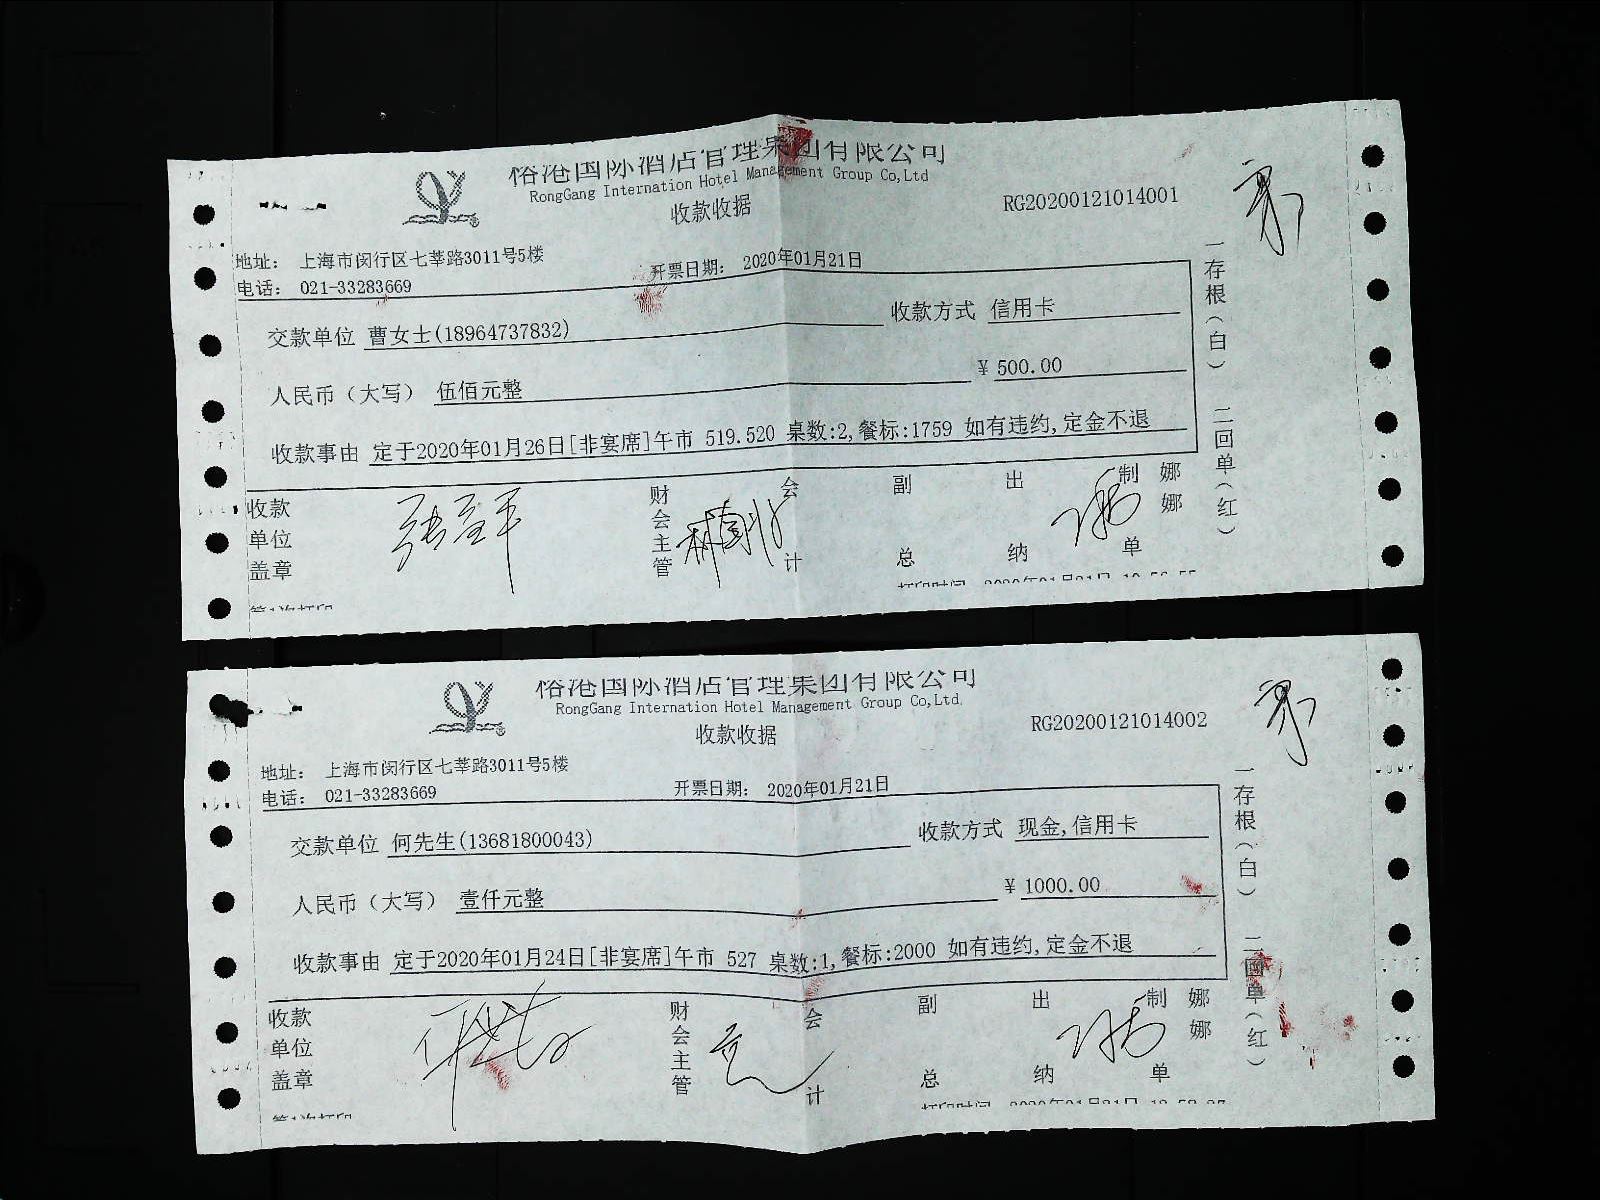 俗港国际酒店管理集团有限公司
RongGang Internation Hotel Management Group Co,Ltd
收款收据
RG20200121014001
地址: 上海市闵行区七莘路3011号5楼
电话: 021-33283669
开票日期: 2020年01月21日
交款单位 曹女士(18964737832)
收款方式 信用卡
人民币（大写） 伍佰元整
¥ 500.00
收款事由 定于2020年01月26日[非宴席]午市 519.520 桌数:2,餐标:1759 如有违约,定金不退
一存根（白） 二回单（红）
收款单位盖章
财会主管
会计
副总
出纳
制单
娜娜
第1次打印
打印时间 2020年01月21日
俗港国际酒店管理集团有限公司
RongGang Internation Hotel Management Group Co,Ltd.
收款收据
RG20200121014002
地址: 上海市闵行区七莘路3011号5楼
电话: 021-33283669
开票日期: 2020年01月21日
交款单位 何先生(13681800043)
收款方式 现金,信用卡
人民币（大写） 壹仟元整
¥ 1000.00
收款事由 定于2020年01月24日[非宴席]午市 527 桌数:1,餐标:2000 如有违约,定金不退
一存根（白） 二回单（红）
收款单位盖章
财会主管
会计
副总
出纳
制单
娜娜
第1次打印
打印时间 2020年01月21日